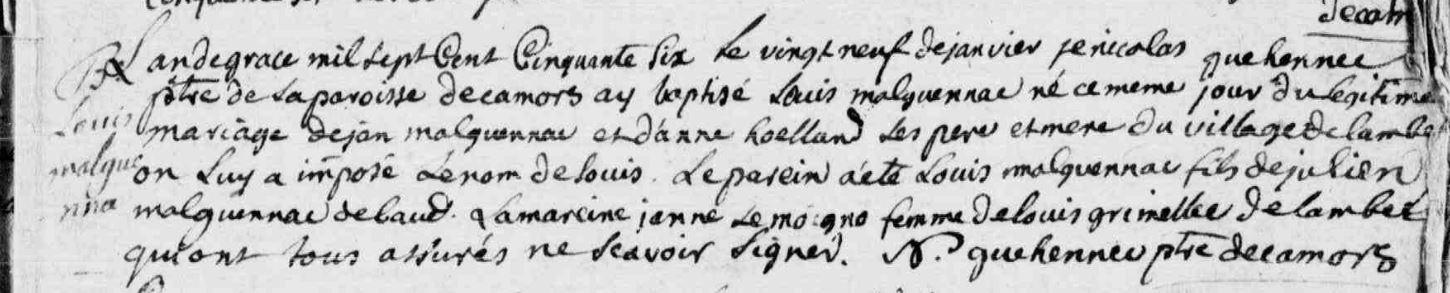 decam
Bt Landegrace mil sept Cent Cinquante six Le vingt neuf dejanvier je nicolas quehennec
Louis ptre de Laparoisse decamors ay baptisé Louis malquennac né ce meme jour du Legitime
mariage dejan malquennac et d'anne hoelland Les pere et mere du village de lambel
malque on Luy a imposé Lénom de Louis. Le parein a été Louis malquennac fils de julien
nnac malquennac de baud. & la mareine janne Le moigno femme de Louis grimellec de lambel
qui ont tous assurés ne scavoir signer. N. quehennec ptre decamors